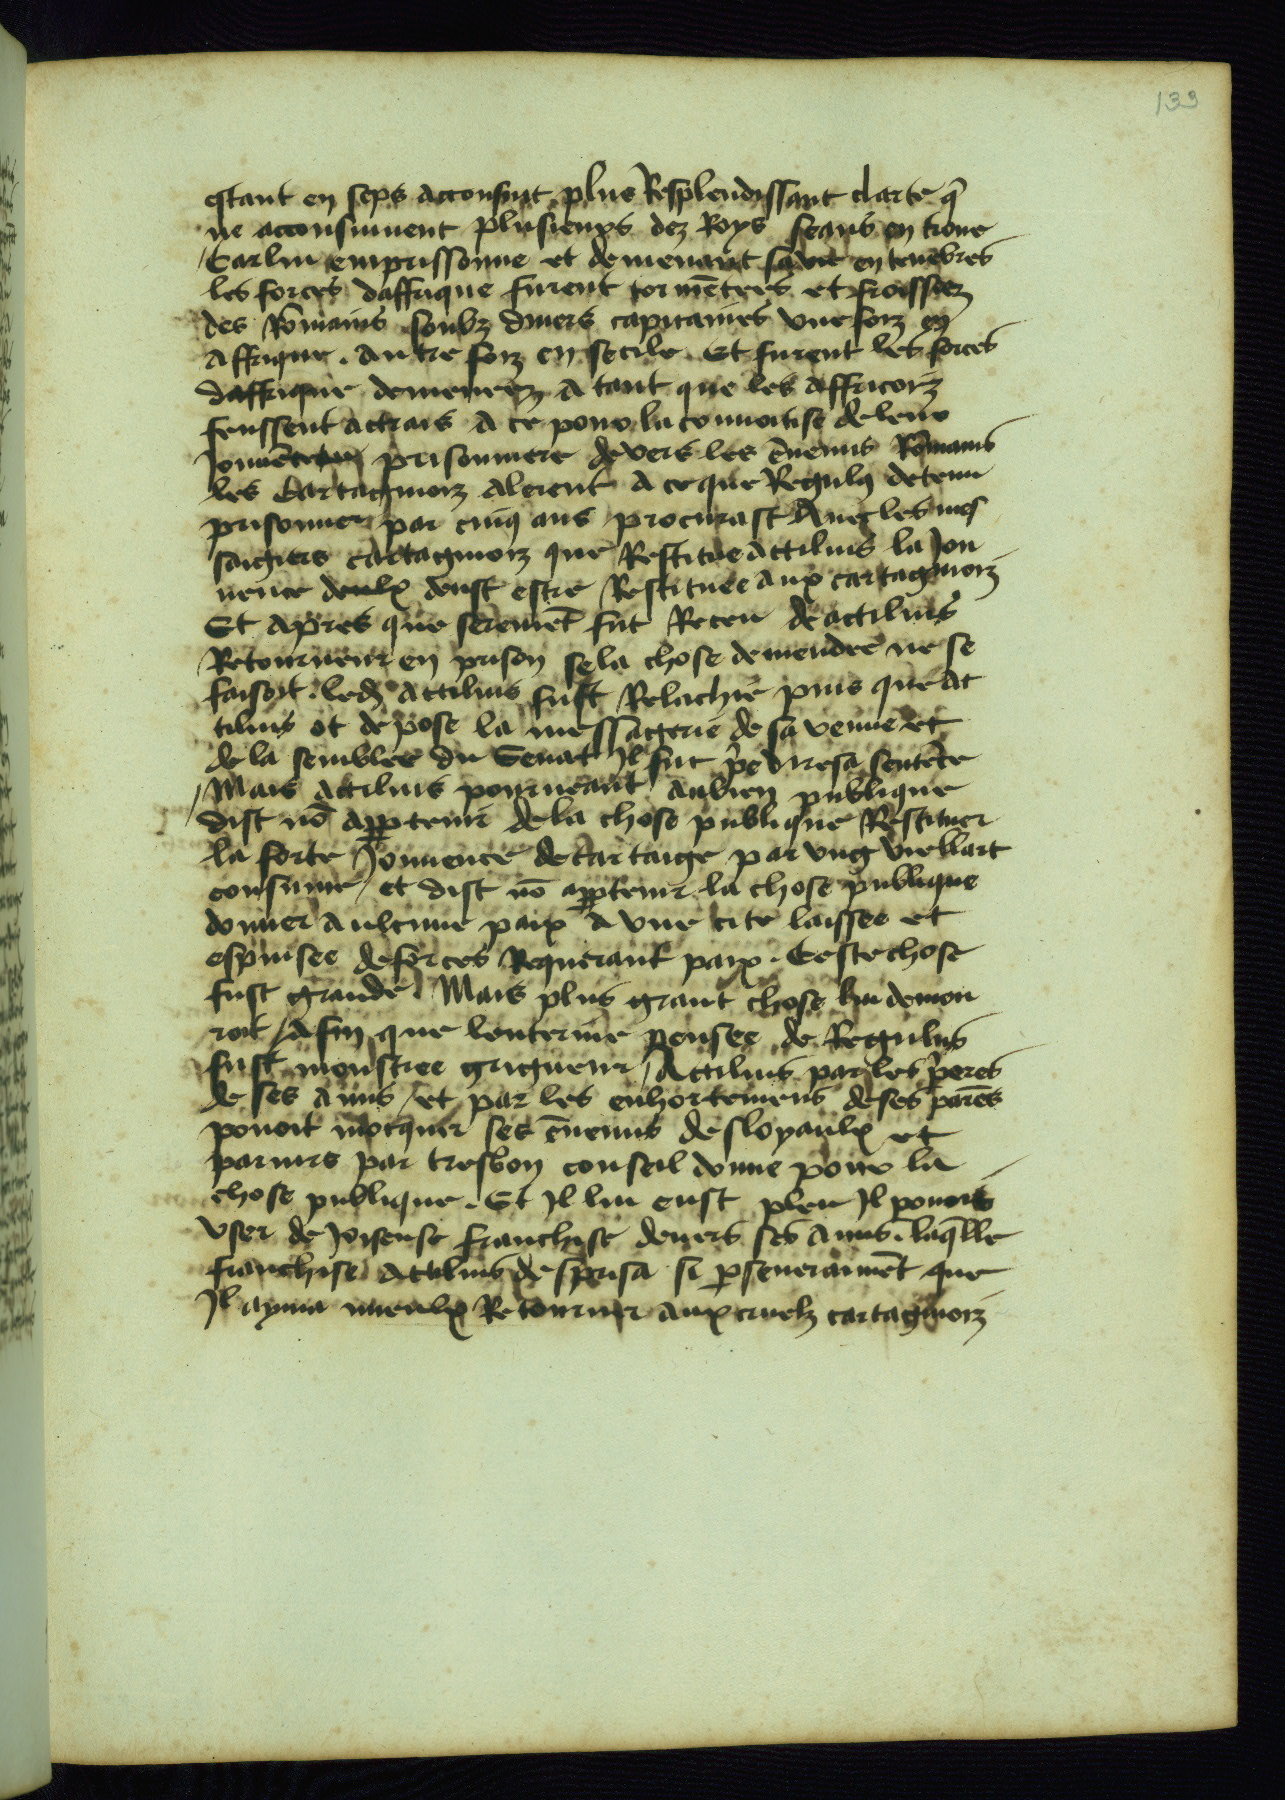 133
estant en seps acconsuit plus Resplendissant clarte q̃
ne acconsuiuent plusieurs dez Roys seans en trone
Car lui emprissonne et demenant sa vie en tenebres
les forces daffrique furent tormẽtees et froissiez
des Rõmains soubz diuers capitaines vne foiz en
affrique. autre foiz en secile. Et furent les forces
daffrique demenez a tant que les affricoiz
feussent actrais a ce pour la conuoitise de leur
Jouuẽte prisonniere devers les ẽnemis Rõmains
les Cartaginoiz alerent a ce que Regulꝯ detenu
prisonnier par cinq ans procurast auec les mes
saigiers cartaginoiz que Restitue actilius la Jou
uence deulx deust estre Restituee aux cartaginoiz
Et apres que seremẽt fut Receu de actilius
Retourneir en prison se la chose demendee ne se
faisoit. led actilius fust Relachie puis que at
tilius ot depose la messagerie de sa venue et
de la semblee du Senat Il fut p̃e sa sentẽce
Mais actilius pourueant au bien publique
dist nõ appertenir de la chose publique Restituer
la forte Jouuence de cartaige par vng viellart
consume / et dist nõ appertenir la chose publique
donner aulcune paix a vne cite laissee et
espuisee de forces Requerant paix. Ceste chose
fust grande. Mais plus grant chose lui demou
roit / Afin que lenterine pensee de Regulus
fust monstree grigneur / Actilius par les p̃eres
de ses amis / et par les enhortemens de ses parẽs
pouoit mocquer ses ẽnemis desloyaulx et
pariurs par tresbon conseil donne pour la
chose publique. Et Il lui eust pleu Il pouoit
vser de Joieuse franchise deuers ses amis. laq̃lle
franchise actilius desprisa si perseueraumẽt que
Il ayma mieulx Retourner aux cruelz cartaginoiz